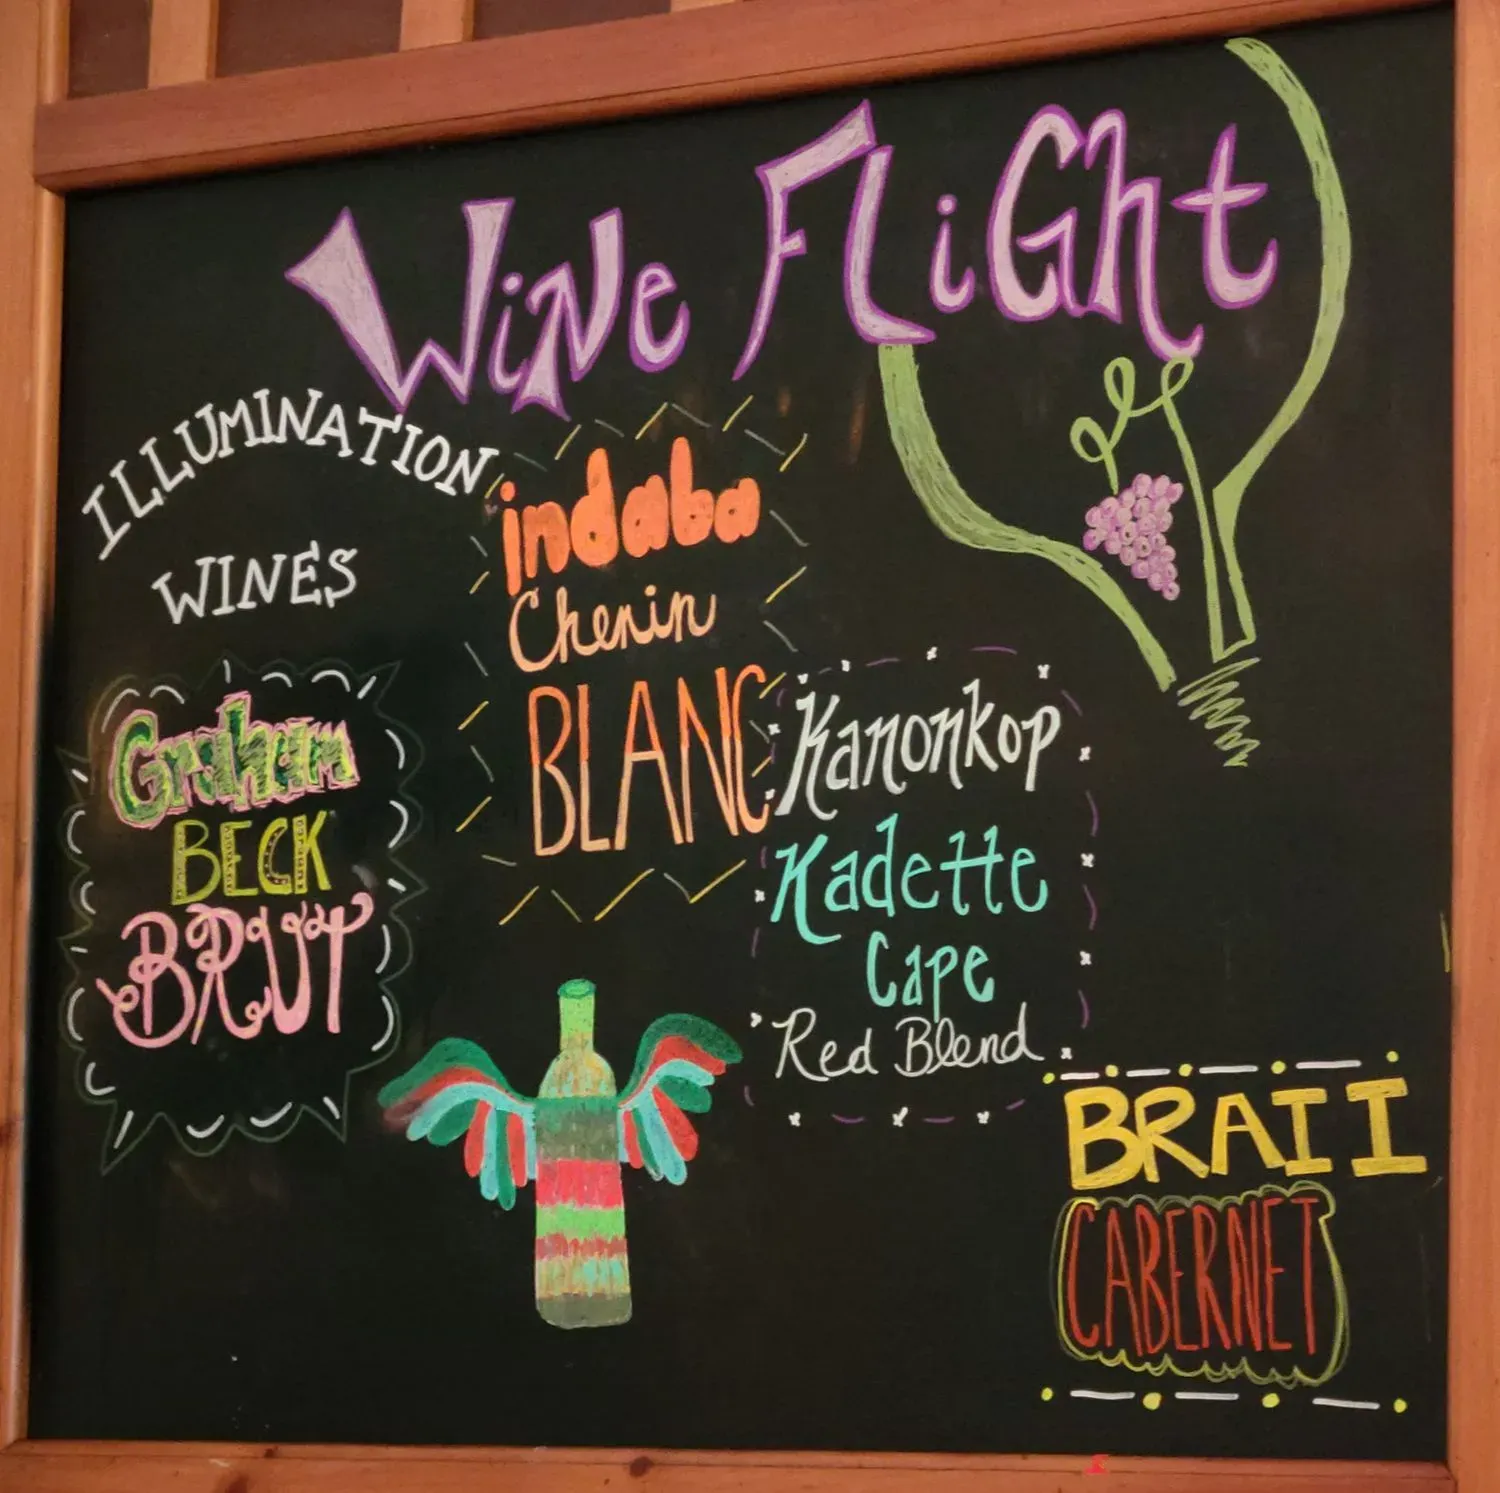 Wine Flight
ILLUMINATION
WINES
Graham
BECK
BRUT
indaba
Chenin
BLANC
Kanonkop
Kadette
Cape
Red Blend
BRAII
CABERNET